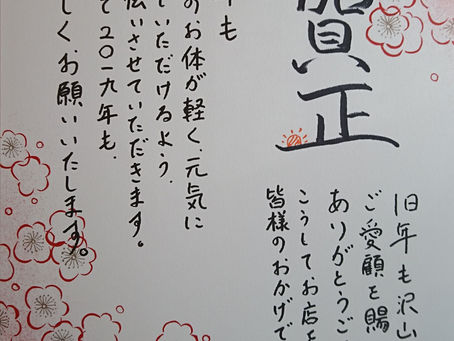 賀正
旧年も沢山
ご愛顧を賜
ありがとうご
こうしてお店を
皆様のおかげで
も
のお体が軽く、元気に
いただけるよう、
伝いさせていただきます。
て2019年も、
しくお願いいたします。